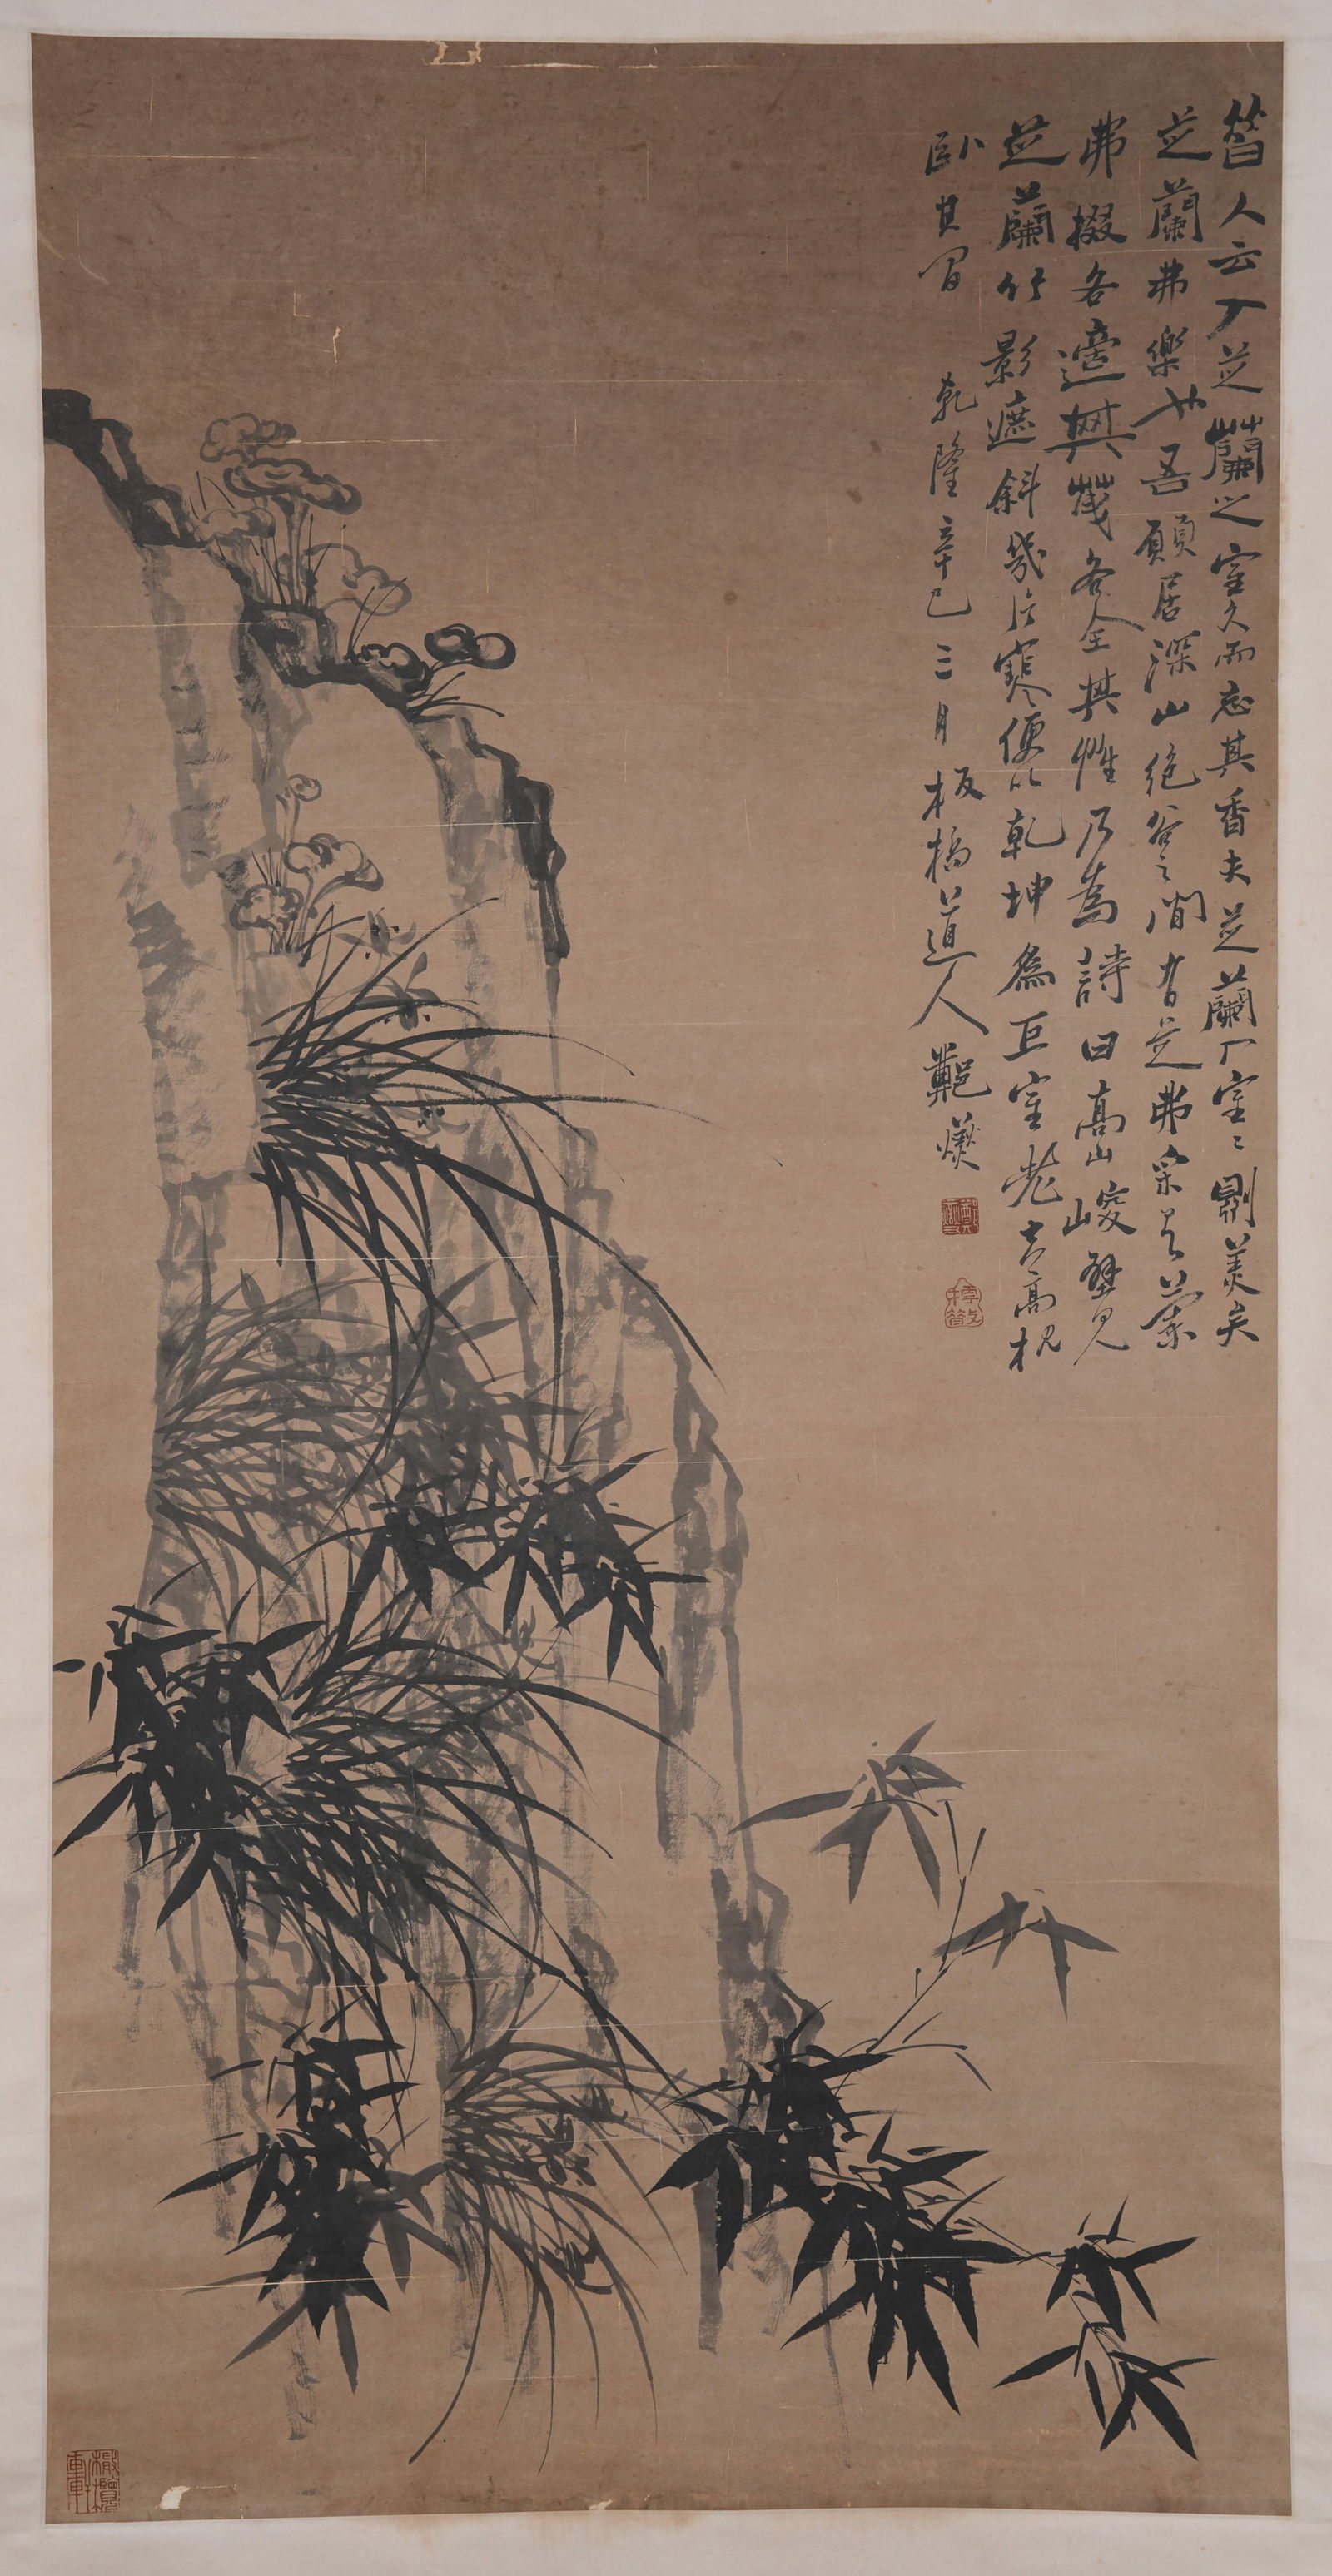 昔人云入芝蘭之室久而忘其香夫芝蘭入室室則美矣
芝蘭弗樂也吾願居深山絕谷之間有芝弗采有蘭
弗掇各適其天各全其性乃為詩曰高山峻壁見
芝蘭竹影遮斜幾片寒便以乾坤為巨室老夫高枕
臥其間 乾隆辛巳三月板橋道人鄭燮